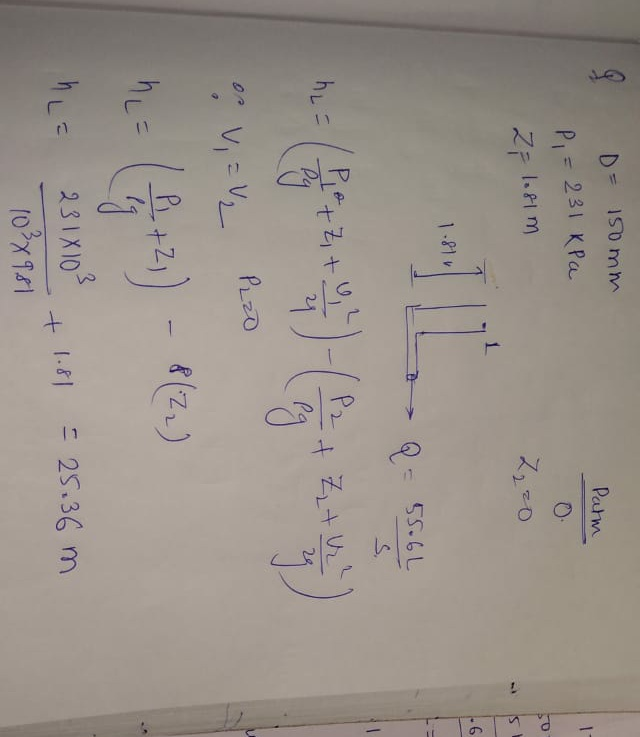 Q
D = 150 mm
P₁ = 231 KPa
Z₁ = 1.81 m
Patm
0.
Z₂ = 0
1.81
1
Q = 55.6 L/S
h_L = (P₁/ρg + Z₁ + V₁²/2g) - (P₂/ρg + Z₂ + V₂²/2g)
∵ V₁ = V₂ P₂ = 0
h_L = (P₁/ρg + Z₁) - (Z₂)
h_L = 231 × 10³ / 10³ × 981 + 1.81 = 25.36 m